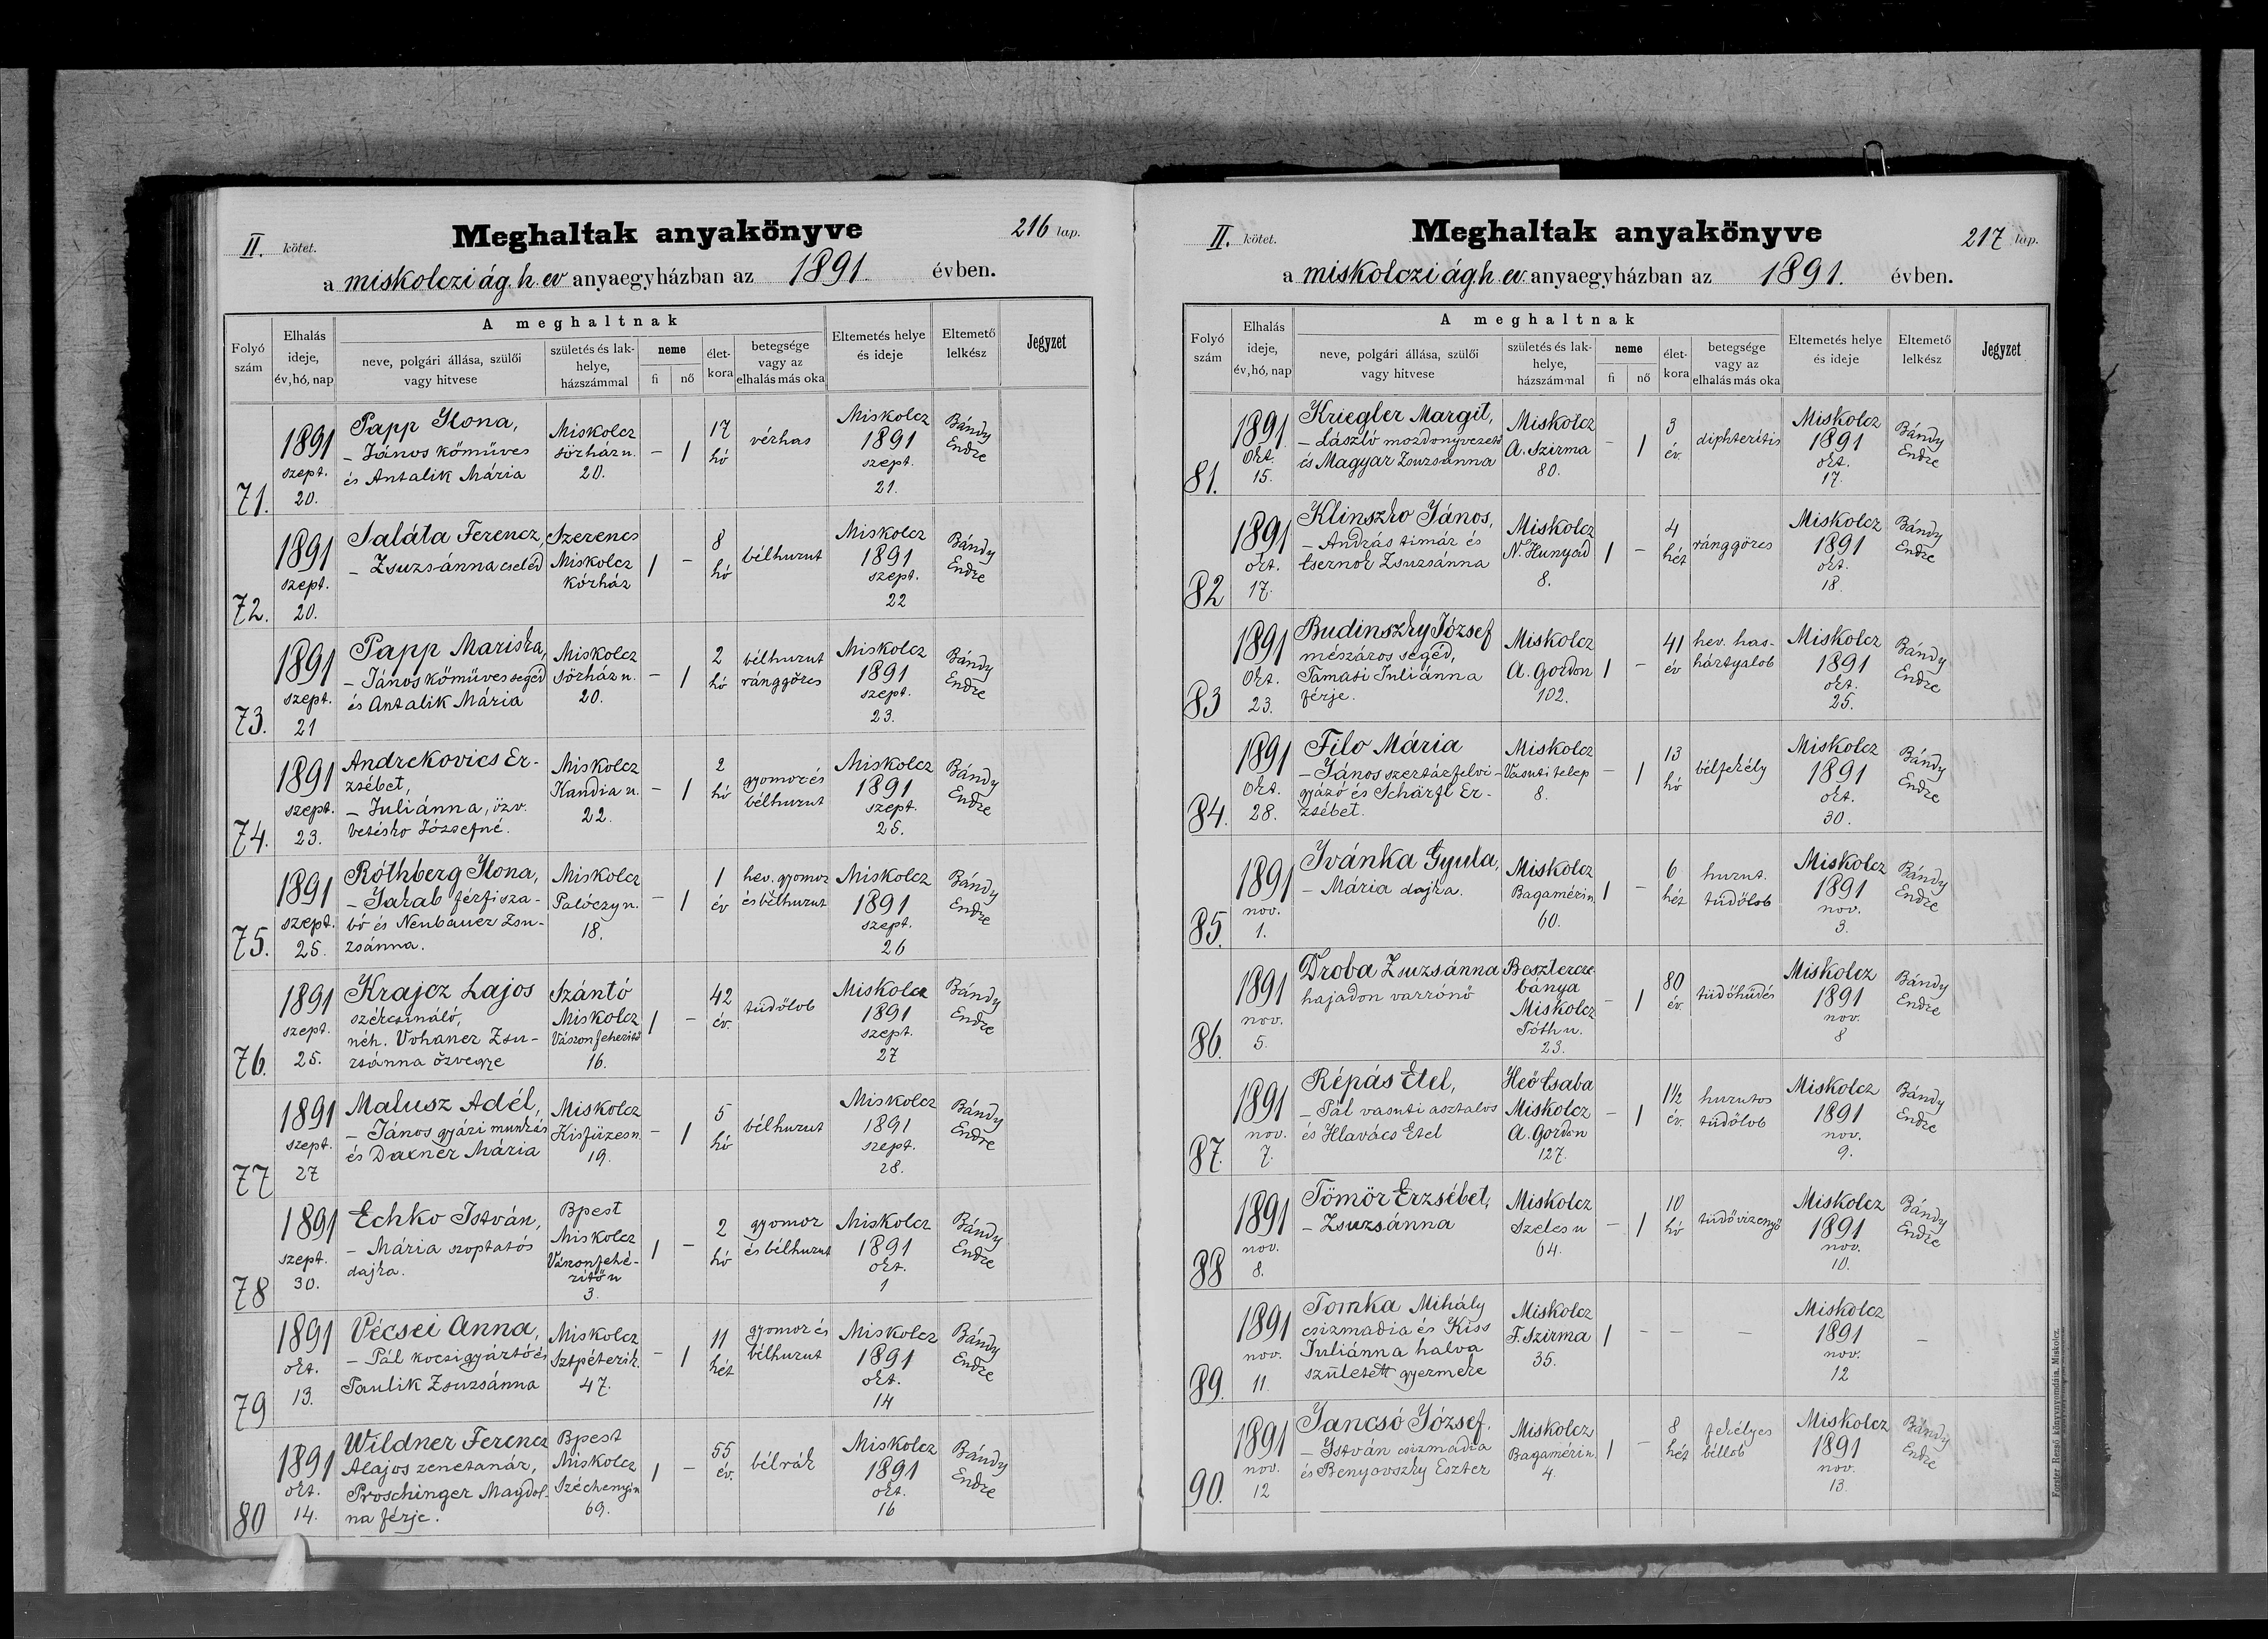 II. kötet.
Meghaltak anyakönyve
216 lap.
a miskolczi ág. h. ev anyaegyházban az 1891. évben.
Folyó szám
Elhalás ideje, év, hó, nap
A meghaltnak
neve, polgári állása, szülői vagy hitvese
születés és lakhelye, házszámmal
neme
fi
nő
életkora
betegsége vagy az elhalás más oka
Eltemetés helye és ideje
Eltemető lelkész
Jegyzet
71. 1891 szept. 20. Papp Ilona, – János kőműves és Antalik Mária Miskolcz sörház u. 20. – 1 17 hó vérhas Miskolcz 1891 szept. 21. Bándy Endre
72. 1891 szept. 20. Saláta Ferencz, – Zsuzsánna cseléd Szerencs Miskolcz kórház 1 – 8 hó bélhurut Miskolcz 1891 szept. 22 Bándy Endre
73. 1891 szept. 21 Papp Mariska, – János kőműves segéd és Antalik Mária Miskolcz sörház u. 20. – 1 2 hó bélhurut ránggörcs Miskolcz 1891 szept. 23. Bándy Endre
74. 1891 szept. 23. Andrekovics Erzsébet, – Juliánna, özv. Józsefné. Miskolcz Kandia u. 22. – 1 2 hó gyomor és bélhurut Miskolcz 1891 szept. 25. Bándy Endre
75. 1891 szept. 25. Róthberg Ilona, – Jakab férfi szabó és Neubauer Zsuzsánna. Miskolcz Palóczy u. 18. – 1 1 év hev. gyomor és bélhurut Miskolcz 1891 szept. 26 Bándy Endre
76. 1891 szept. 25. Krajcz Lajos székcsináló, néh. Zsuzsánna özvegye Szántó Miskolcz Vászonfehérítő 16. 1 – 42 év. tüdőlob Miskolcz 1891 szept. 27 Bándy Endre
77 1891 szept. 27 Malusz Adél, – János gyári munkás és Daxner Mária Miskolcz Kisfüzes u. 19. – 1 5 hó bélhurut Miskolcz 1891 szept. 28. Bándy Endre
78 1891 szept. 30. Echko István, – Mária szoptatós dajka. Bpest Miskolcz Vászonfehérítő u 3. 1 – 2 hó gyomor és bélhurut Miskolcz 1891 okt. 1 Bándy Endre
79 1891 okt. 13. Vécsei Anna, – Pál kocsigyártó és Paulik Zsuzsánna Miskolcz Sztpéterik. 47. – 1 11 hét gyomor és bélhurut Miskolcz 1891 okt. 14 Bándy Endre
80 1891 okt. 14. Wildner Ferencz Alajos zenetanár, Proschinger Magdolna férje. Bpest Miskolcz Széchenyi u 69. 1 – 55 év. bélrák Miskolcz 1891 okt. 16 Bándy Endre
II. kötet.
Meghaltak anyakönyve
217 lap.
a miskolczi ág. h. ev. anyaegyházban az 1891. évben.
Folyó szám
Elhalás ideje, év, hó, nap
A meghaltnak
neve, polgári állása, szülői vagy hitvese
születés és lakhelye, házszámmal
neme
fi
nő
életkora
betegsége vagy az elhalás más oka
Eltemetés helye és ideje
Eltemető lelkész
Jegyzet
81. 1891 Okt. 15. Kriegler Margit, – László mozdonyvezető és Magyar Zsuzsánna Miskolcz A. Szirma 80. – 1 3 év diphteritis Miskolcz 1891 okt. 17. Bándy Endre
82 1891 okt. 17. Klinszko János, – András timár és Csernok Zsuzsánna Miskolcz N. Hunyad 8. 1 – 4 hét ránggörcs Miskolcz 1891 okt. 18. Bándy Endre
83 1891 Okt. 23. Budinszky József mészáros segéd, Tamasi Juliánna férje. Miskolcz A. Gordon 102. 1 – 41 év hev. hashártyalob Miskolcz 1891 okt. 25. Bándy Endre
84. 1891 Okt. 28. Filo Mária – János szertárfelvigyázó és Schärfl Erzsébet. Miskolcz Vasuti telep 8. – 1 13 hó bélfekély Miskolcz 1891 okt. 30. Bándy Endre
85. 1891 nov. 1. Ivánka Gyula, – Mária dajka. Miskolcz Bagaméri u. 60. 1 – 6 hét hurut. tüdőlob Miskolcz 1891 nov. 3. Bándy Endre
86. 1891 nov. 5. Droba Zsuzsánna hajadon varrónő Beszterczebánya Miskolcz Tóth u. 23. – 1 80 év. tüdőhűdés Miskolcz 1891 nov. 8 Bándy Endre
87. 1891 nov. 7. Répás Etel, – Pál vasuti asztalos és Hlavács Etel Heő Csaba Miskolcz A. Gordon 127. – 1 1½ év. hurutos tüdőlob Miskolcz 1891 nov. 9. Bándy Endre
88 1891 nov. 8. Tömör Erzsébet, – Zsuzsánna Miskolcz Szeles u 64. – 1 10 hó tüdővizenyő Miskolcz 1891 nov. 10. Bándy Endre
89. 1891 nov. 11. Tomka Mihály csizmadia és Kiss Juliánna halva született gyermeke Miskolcz F. Szirma 35. 1 – – – Miskolcz 1891 nov. 12 –
90. 1891 nov. 12 Jancsó József, – István csizmadia és Benyovszky Eszter Miskolcz Bagaméri u. 4. 1 – 8 hét fekélyes béllob Miskolcz 1891 nov. 13. Bándy Endre
Forster Rezső könyvnyomdája, Miskolcz.